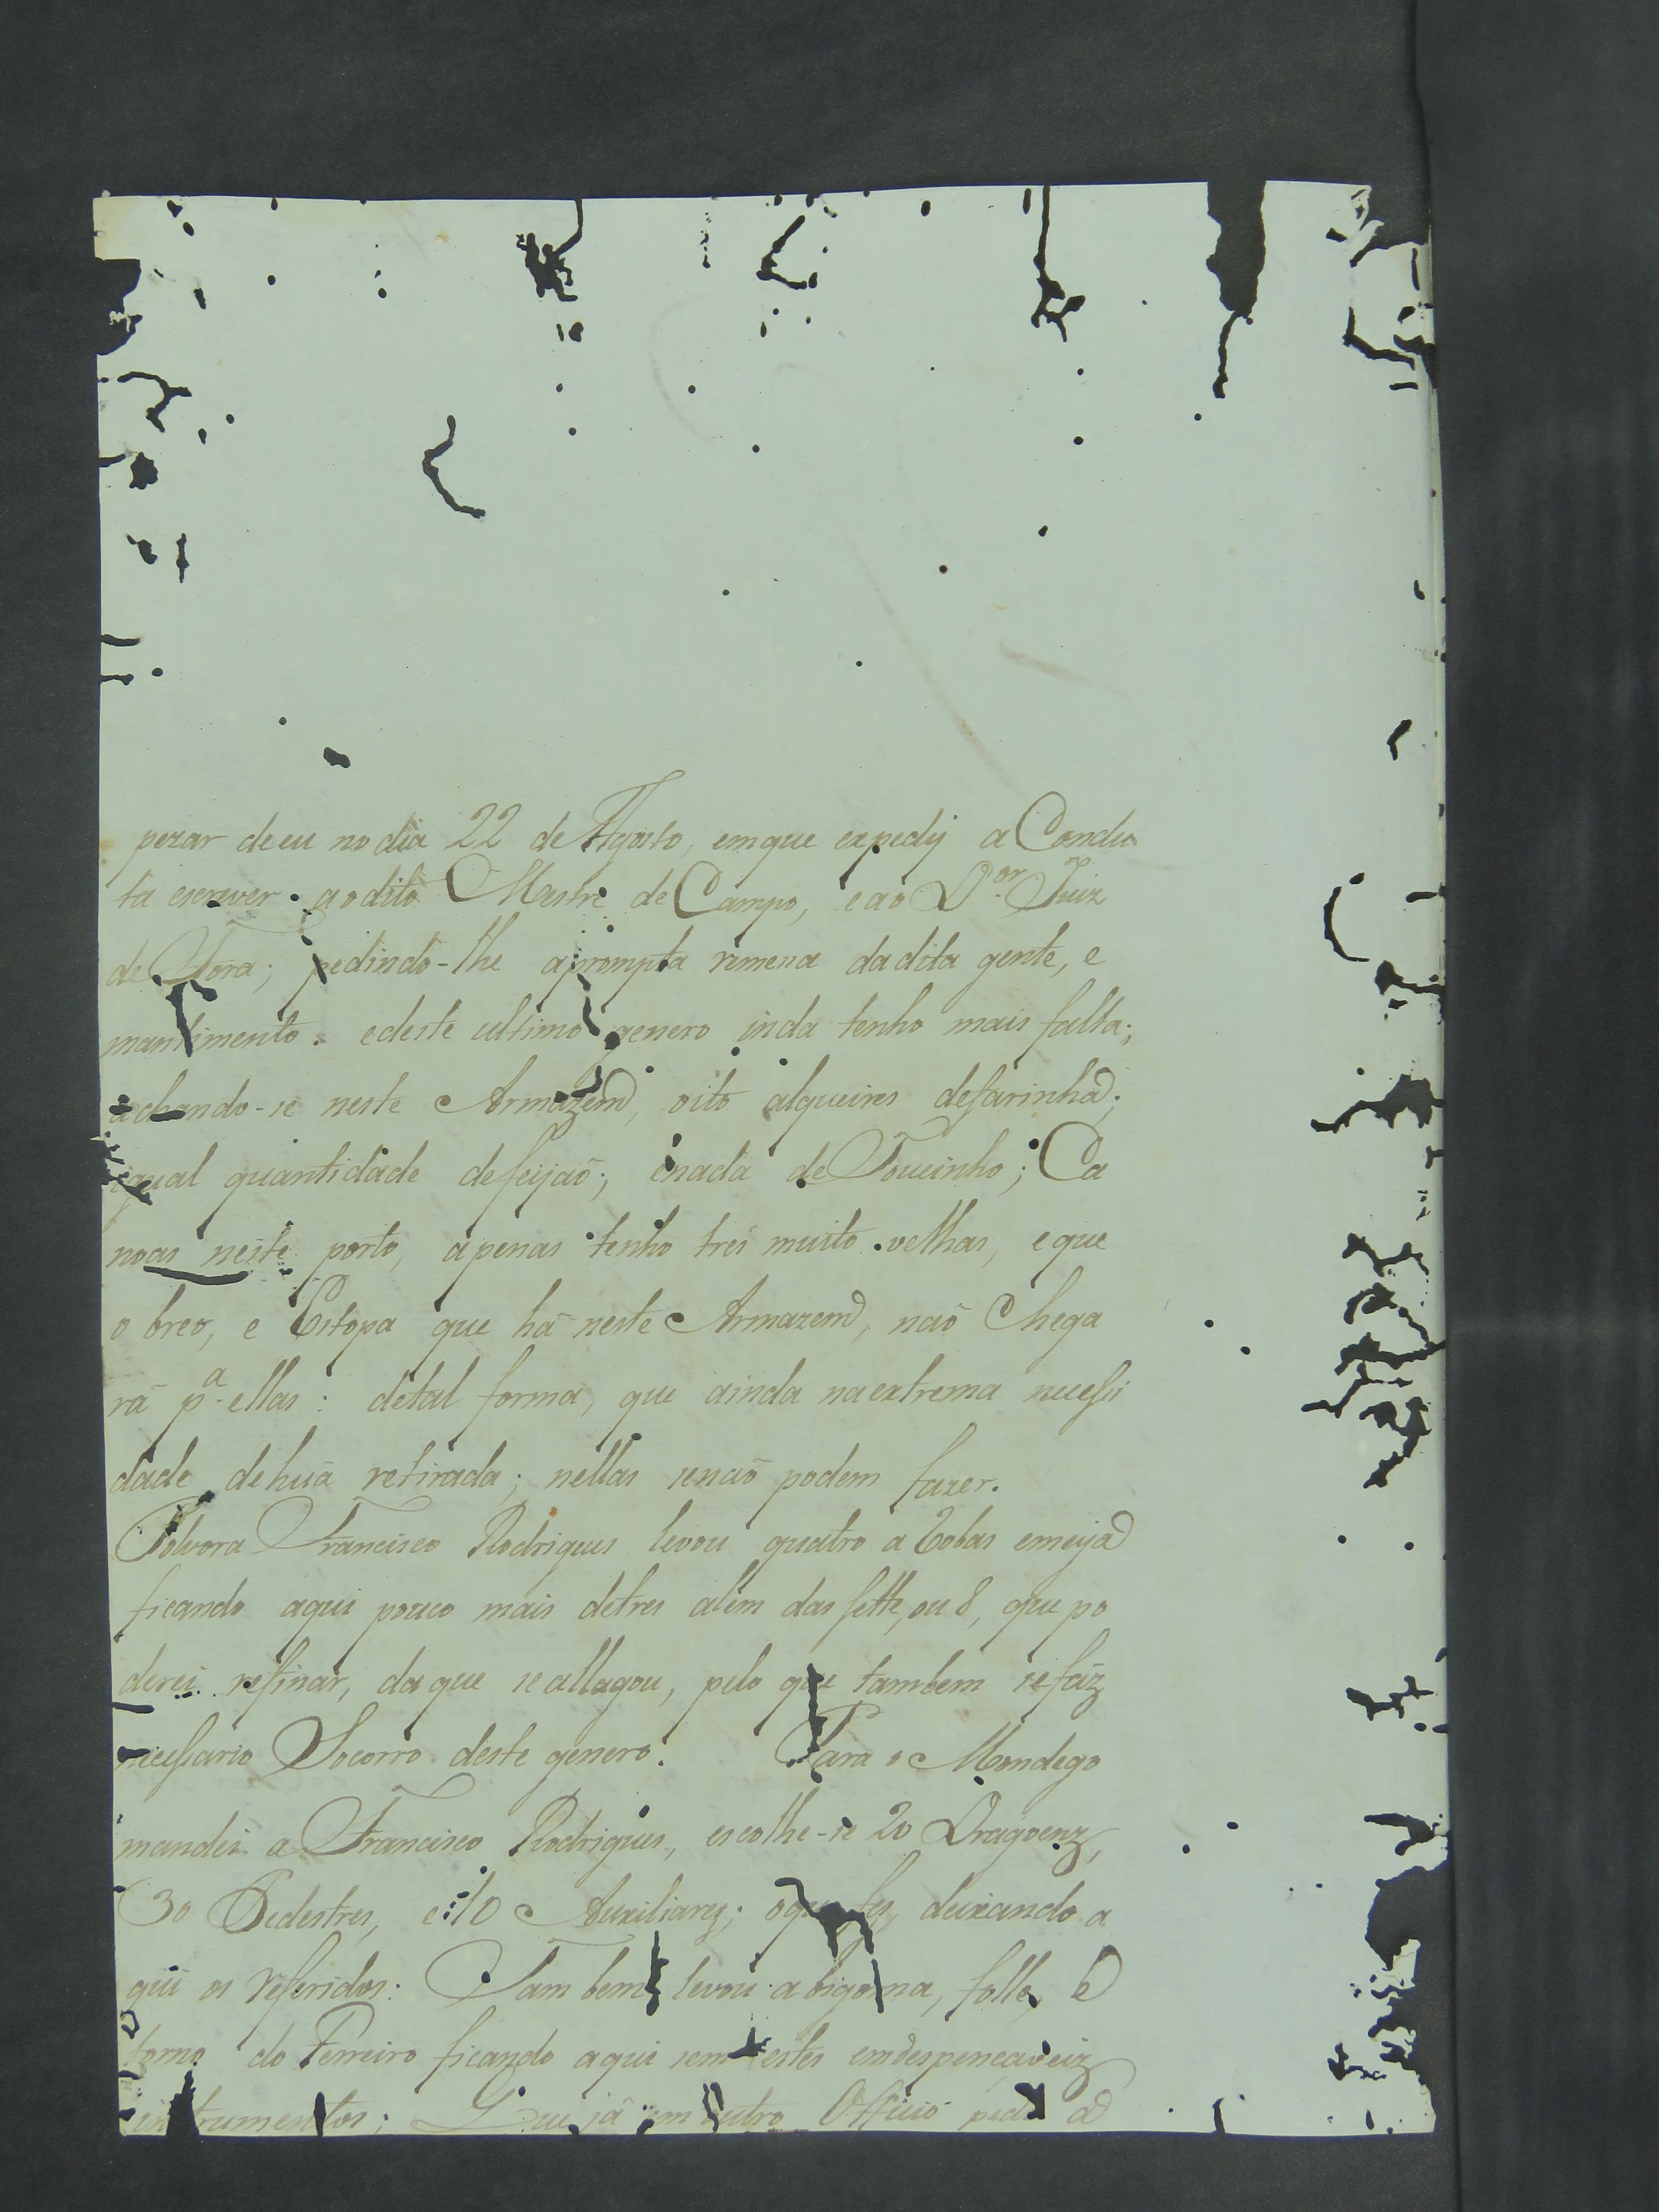 pezar de eu no dia 22 de Agosto, emque expedij a Condu
ta escrever ao dito Mestre de Campo, e ao D.or Juiz
de Fora; pedindo-lhe aprompta remeça dadita gente, e
mantimento. edeste ultimo genero inda tenho mais falta;
achando-se neste Armazem, oito alqueires defarinha;
igual quantidade defeijaõ; enada de Toucinho; Ca
noas neste porto, apenas tenho tres muito velhas, e que
o breo, e Estopa que há neste Armazem, naõ Chega
rá p.a ellas: detal forma, que ainda naextrema necessi
dade dehuã retirada; nellas senaõ podem fazer.
Polvora Francisco Rodrigues levou quatro aRobas emeya
ficando aqui pouco mais detres alem das sette, ou 8, que po
derei refinar, da que se allagou, pelo que tambem sefaz
necessario Socorro deste genero. Para o Mondego
mandei a Francisco Rodrigues, escolhe-se 20 Dragoenz,
30 Pedestres, e 10 Auxiliarez; oque fes, deixando a
qui os referidos: Tam bem levou abigorna, folle, e
torno do Ferreiro ficando aqui sem estes emdespençaveiz
instrumentos; Que já em outro Officio pedi a